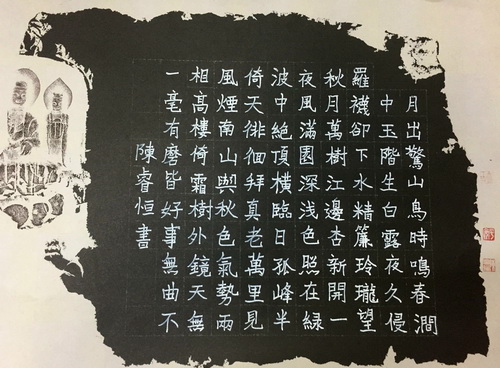 月出驚山鳥時鳴春澗
中玉階生白露夜久侵
羅襪卻下水精簾玲瓏望
秋月萬樹江邊杏新開一
夜風滿園深浅色照在緑
波中絶頂橫臨日孤峰半
倚天徘徊拜真老萬里見
風煙南山與秋色氣勢兩
相高樓倚霜樹外鏡天無
一毫有磨皆好事無曲不
陳睿恒書